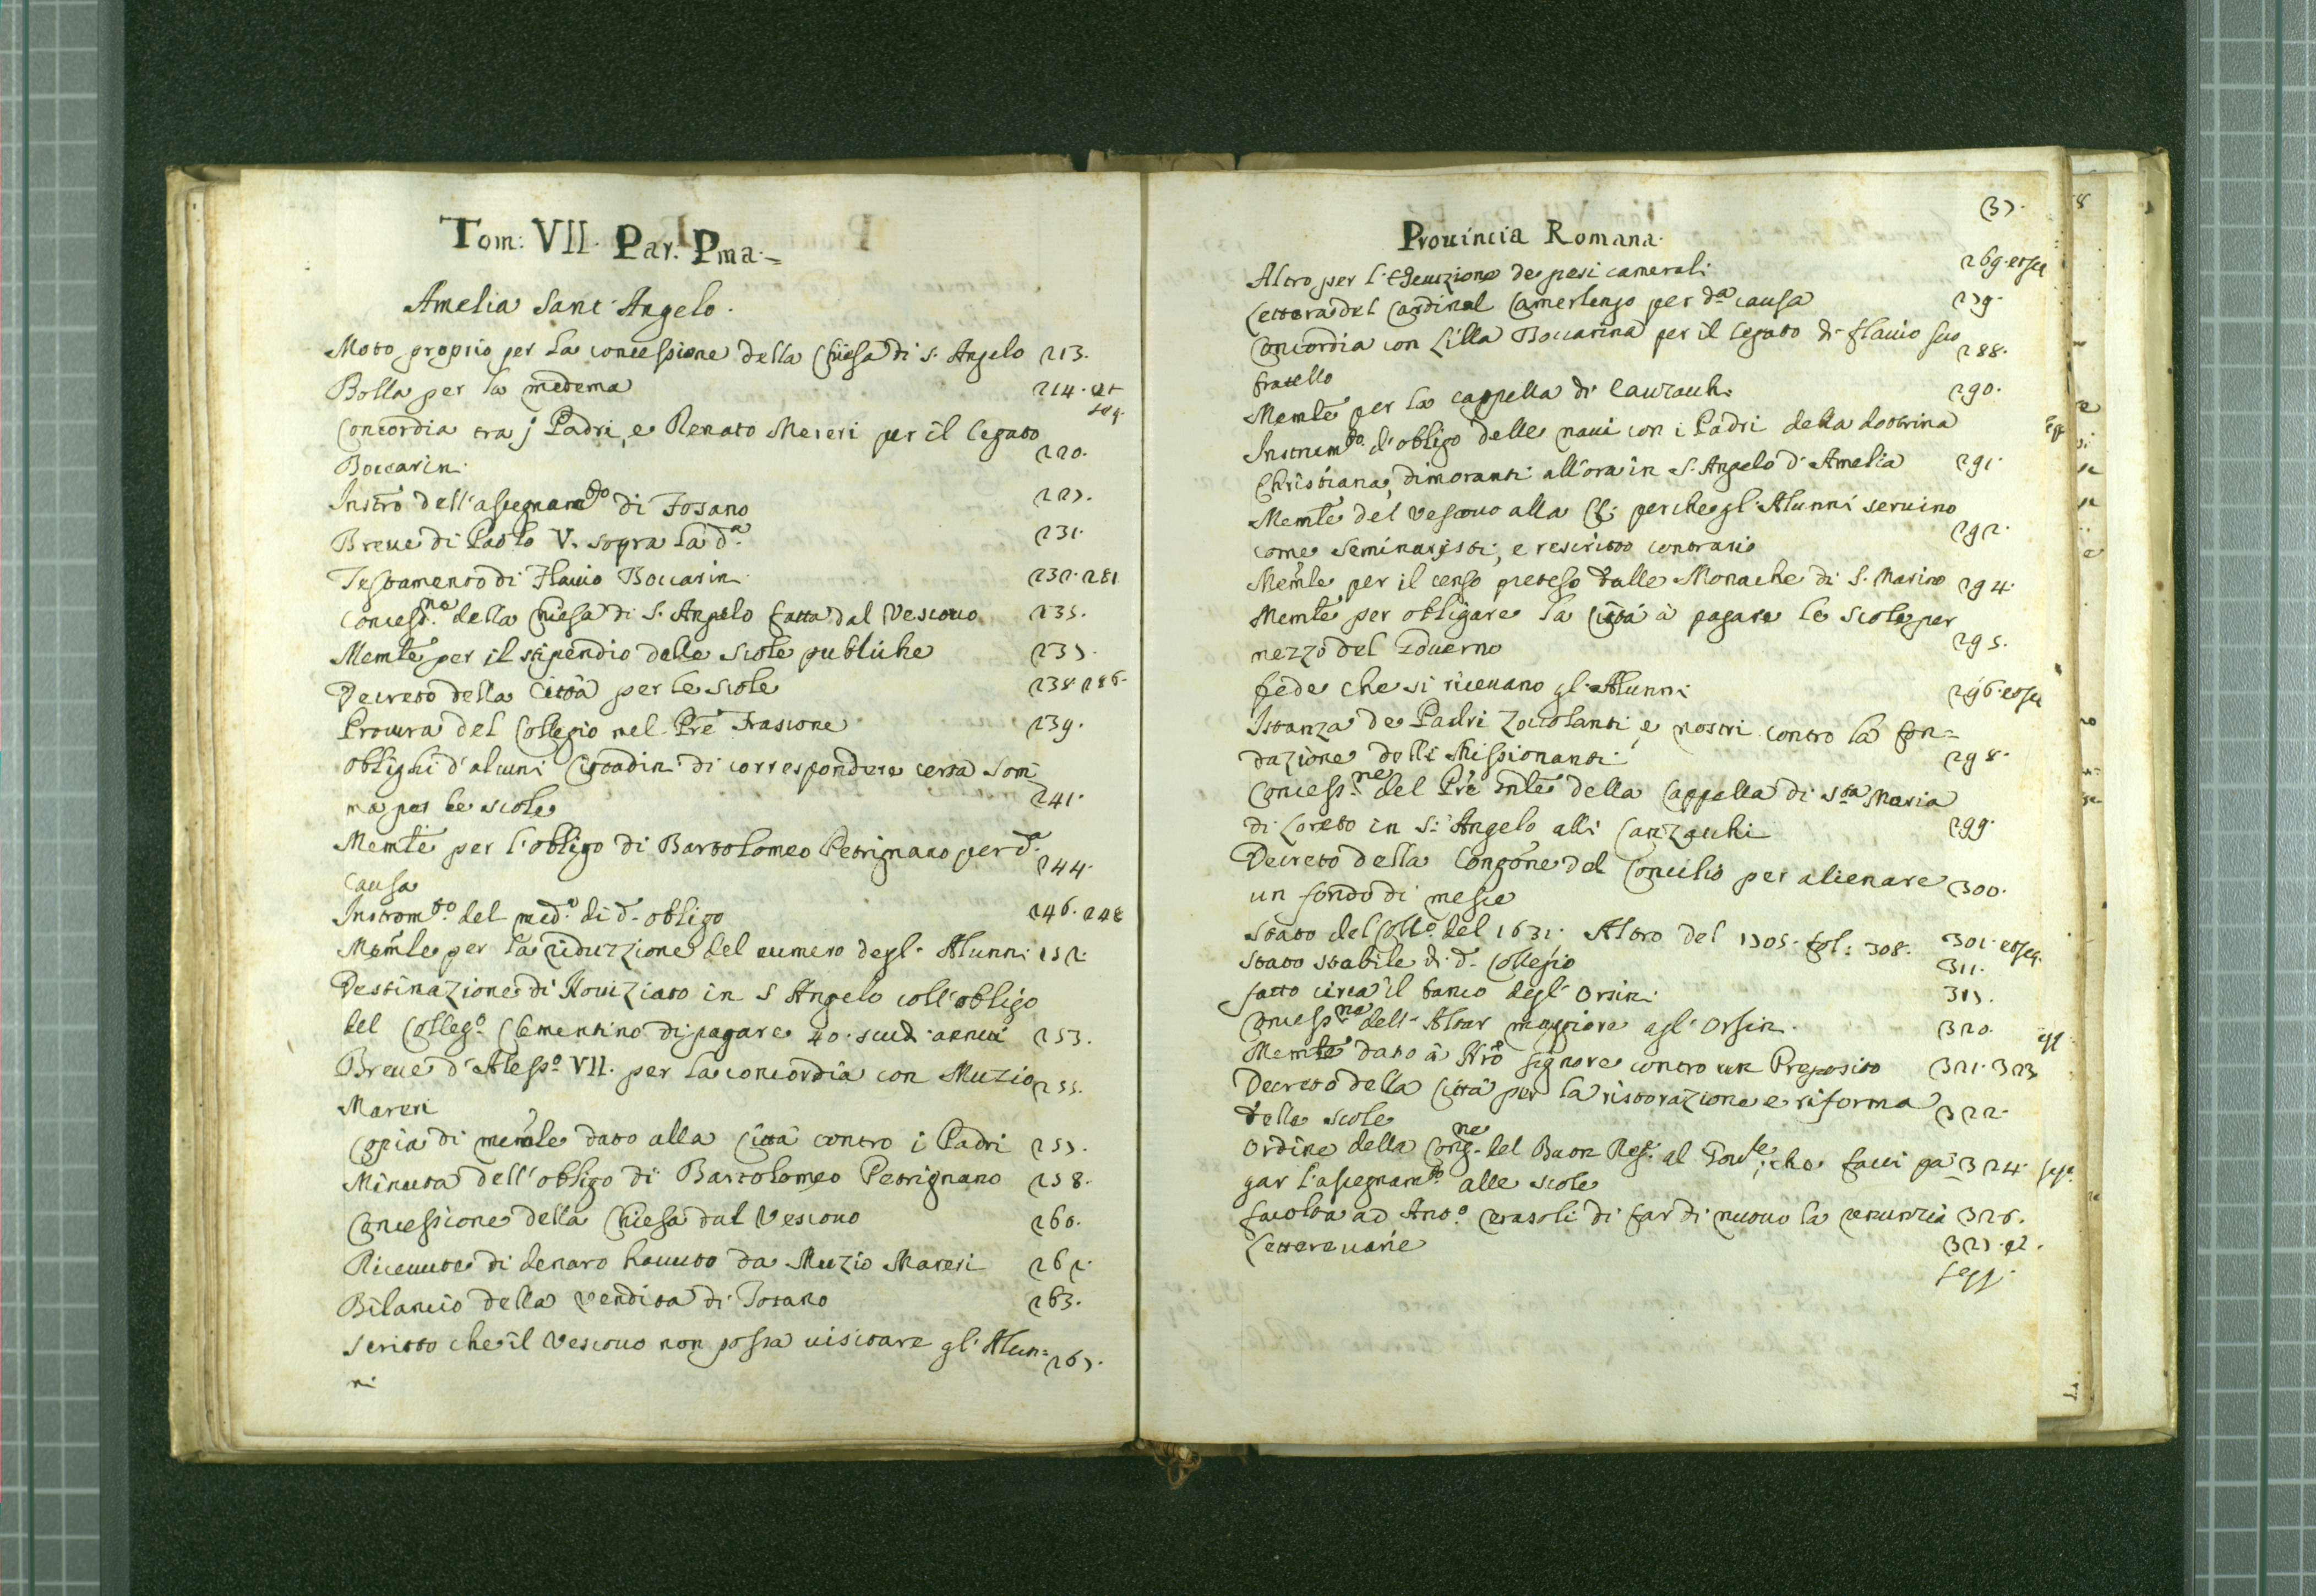 Tom: VII. Par. Pma.=
Amelia Sant'Angelo.
Moto proprio per la concessione della Chiesa di S. Angelo 213.
Bolla per la medema 214. et
seq.
Concordia tra j Padri, e Renato Mereri per il legato
Boccarini 220.
Instro dell'assegnamto di Fosano 227.
Breve di Paolo V. sopra la da. 231.
Testamento di Flavio Boccarin 232. 281
Concessne. della Chiesa di S. Angelo fatta dal Vescovo 235.
Memle per il stipendio delle scole publiche 237.
Decreto della Città per le scole 238. 286.
Procura del Collegio nel Pre Frascone 239.
Oblighi d'alcuni Cittadini di correspondere certa som
ma per le scole 241.
Memle per l'obligo di Bartolomeo Petrignano per da.
Causa 244.
Instromto. del medo. di d. obligo 246. 248
Memle per la riduzzione del numero degl'Alunni 252.
Destinazione di Noviziato in S Angelo coll'obligo
del Collego. Clementino di pagare 40. scudi annui 253.
Breve d'Alesso. VII. per la concordia con Muzio 255.
Mareri
Copia di memle dato alla Città contro i Padri 257.
Minuta dell'obligo di Bartolomeo Petrignano 258.
Concessione della Chiesa dal Vescovo 260.
Ricevute di denaro havuto da Muzio Mareri 262.
Bilancio della vendita di Fosano 263.
Scritto che il Vescovo non possa visitare gl'Alun= 267.
ni
(37.
Provincia Romana.
Altro per l'esenzione de pesi camerali 269. et seq
Lettera del Cardinal Camerlengo per da causa 279.
Concordia con Lilla Boccarina per il legato di Flavio suo
fratello 288.
Memle per la cappella di 290.
Instrumto. d'obligo delle navi con i Padri della dottrina
Christiana, dimoranti all'ora in S. Angelo d'Amelia 291.
Memle del Vescovo alla perche gl'Alunni servino
come Seminaristi, e rescritto contrario 292.
Memle per il censo preteso dalle Monache di S. Marino 294.
Memle per obligare la Città à pagare le scole per
mezzo del Governo 295.
fede che si ricevano gl'Alunni 296. et seq
Istanza de Padri Zoccolanti e nostri contro la fon=
dazione delli Missionanti 298.
Concessne. del Pre Gnle della Cappella di Sta Maria
di Loreto in S. Angelo alli Canzachi 299.
Decreto della Congone del Concilio per alienare 300.
un fondo di
Stato del Collo. del 1631. Altro del 1705. fol: 308. 301. et seq.
Stato stabile di d. Collegio 311.
fatto circa il banco degl'Orsini 317.
Concessne dell'Altar maggiore agl'Orsin. 320.
Memle dato à Nro Signore contro un Preposito 321. 323
Decreto della Città per la ristorazione e riforma
delle scole 322.
Ordine della Congne. del Buon Rego. al Govre, che facci pa= 324. seq.
gar l'assegnamto. alle scole
facolta ad Anto. di far di nuovo la renunzia 326.
Lettere varie 327. et.
seqq.